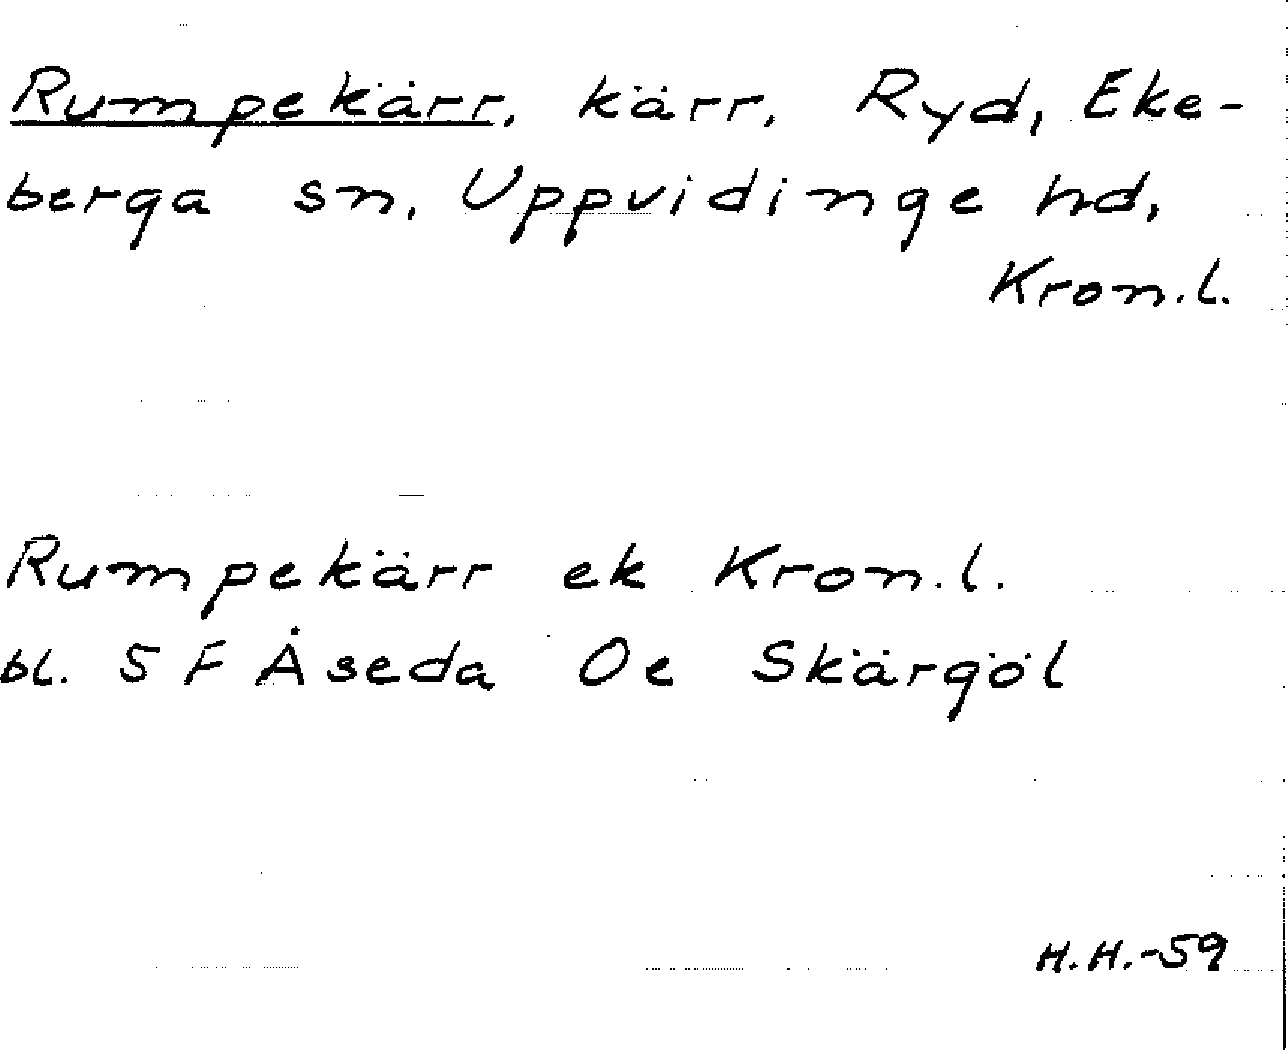 Rumpekärr, kärr, Ryd, Eke-
berga sn, Uppvidinge hd,
Kron.l.
Rumpekärr ek Kron.l.
bl. 5 F Åseda Oe Skärgöl
H.H.-59